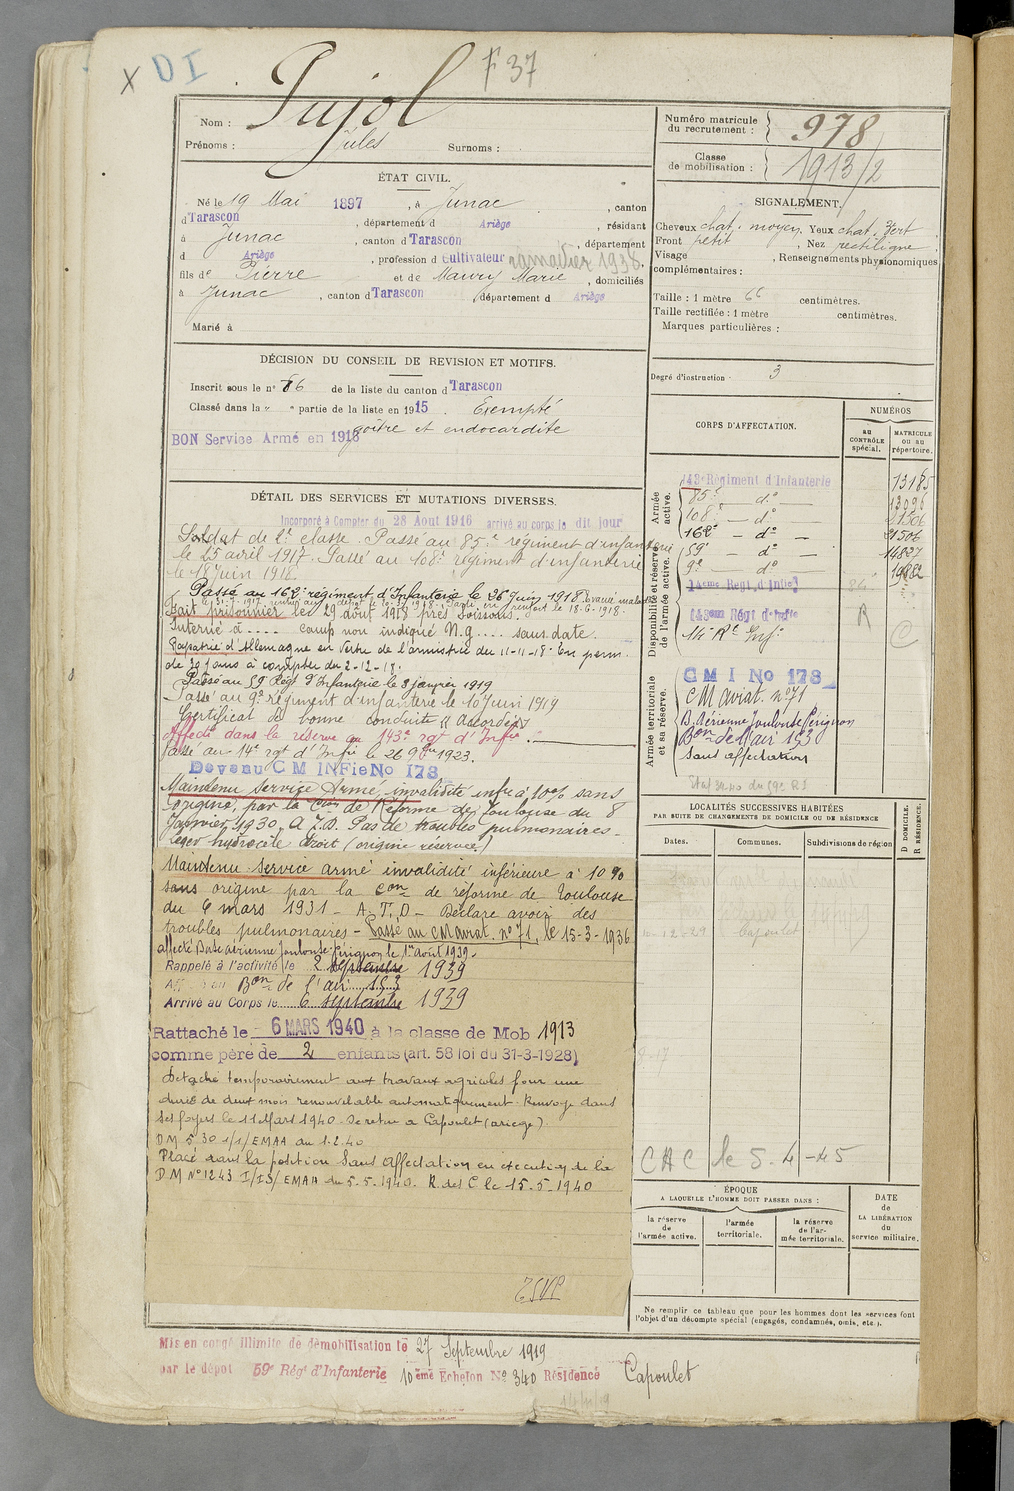 X DI F 37
Nom : Pujol
Prénoms : Jules Surnoms :
Numéro matricule du recrutement : 978
Classe de mobilisation : 1913/2
ÉTAT CIVIL.
Né le 19 Mai 1897, à Junac, canton
d Tarascon, département d Ariège, résidant
à Junac, canton d Tarascon, département
d Ariège, profession d cultivateur 1938.
fils de Pierre et de Maury Marie, domiciliés
à Junac, canton d Tarascon, département d Ariège
Marié à
SIGNALEMENT.
Cheveux chat. moyen Yeux chat. vert
Front petit, Nez rectiligne
Visage, Renseignements physionomiques
complémentaires :
Taille : 1 mètre 66 centimètres.
Taille rectifiée : 1 mètre centimètres.
Marques particulières :
Degré d'instruction 3
DÉCISION DU CONSEIL DE REVISION ET MOTIFS.
Inscrit sous le n° 86 de la liste du canton d Tarascon
Classé dans la " " partie de la liste en 1915. Exempté
goitre et endocardite
BON Service Armé en 1916
DÉTAIL DES SERVICES ET MUTATIONS DIVERSES.
Incorporé à Compter du 28 Aout 1916 arrivé au corps le dit jour
Soldat de 2e classe. Passé au 85e régiment d'infanterie
le 25 avril 1917. Passé au 108e régiment d'infanterie
le 18 Juin 1918.
Passé au 162e régiment d'Infanterie le 26 Juin 1918. Evacué malade
Fait prisonnier le 29 août 1918 près Soissons.
Interné à .... camp non indiqué N.g.... sans date.
Rapatrié d'Allemagne en vertu de l'armistice du 11-11-18. En perm.
de 30 jours à compter du 2-12-18.
Passé au 59 Régt d'Infanterie le 3 janvier 1919
Passé au 9e régiment d'infanterie le 10 Juin 1919
Certificat de bonne conduite "Accordé"
Affecté dans la réserve au 143e rgt d'Infie.
Passé au 14e rgt d'Infie le 26 9bre 1923.
Devenu C M INFie No 178
Maintenu Service Armé, invalidité infre à 10% sans
origine, par la Cion de Réforme de Toulouse du 8
Janvier 1930. A.T.D. Pas de troubles pulmonaires -
Léger hydrocèle droit (origine réservée)
Maintenu service armé invalidité inférieure à 10%
sans origine par la Con de réforme de Toulouse
du 6 mars 1931 - A.T.D - Déclare avoir des
troubles pulmonaires - Passé au CM aviat. n° 71, le 15-3-1936
affecté Base aérienne Toulouse-Pérignon le 1er Août 1939.
Rappelé à l'activité le 2 septembre 1939
Bon de l'air 153
Arrivé au Corps le 6 septembre 1939
Rattaché le 6 MARS 1940 à la classe de Mob 1913
comme père de 2 enfants (art. 58 loi du 31-3-1928)
Détaché temporairement aux travaux agricoles pour une
durée de deux mois renouvelable automatiquement. Renvoyé dans
ses foyers le 11 Mars 1940. Se retire a Capoulet (ariege).
DM 530 1/1/EMAA du 1.2.40
Placé dans la position Sans Affectation en execution de la
DM N° 1243 I/IS/EMAA du 5.5.1940. R. des C le 15.5.1940
TSVP
CORPS D'AFFECTATION.
NUMÉROS
au CONTRÔLE spécial.
MATRICULE ou au répertoire.
Armée active.
143e Régiment d'Infanterie 13185
85e — do — 13090
108e — do
162e — do — 21506
59e — do — 14827
9e — do
Disponibilité et réserve de l'armée active.
14eme Régt d'Infie
143eme Régt d'Infie R
14e Rt Inf. C
Armée territoriale et sa réserve.
C M I No 178
CM aviat. n° 71
B. Aérienne Toulouse Pérignon
Bon de l'air 153
Sans affectation
LOCALITÉS SUCCESSIVES HABITÉES
PAR SUITE DE CHANGEMENTS DE DOMICILE OU DE RÉSIDENCE
Dates. Communes. Subdivisions de région
D DOMICILE. R RÉSIDENCE.
Capoulet
CAC le 5-4-45
ÉPOQUE
A LAQUELLE L'HOMME DOIT PASSER DANS :
la réserve de l'armée active.
l'armée territoriale.
la réserve de l'armée territoriale.
DATE de LA LIBÉRATION du service militaire.
Ne remplir ce tableau que pour les hommes dont les services font
l'objet d'un décompte spécial (engagés, condamnés, omis, etc.).
Mis en congé illimité de démobilisation le 27 Septembre 1919
par le dépot 59e Régt d'Infanterie 10eme Echelon No 340 Résidence Capoulet